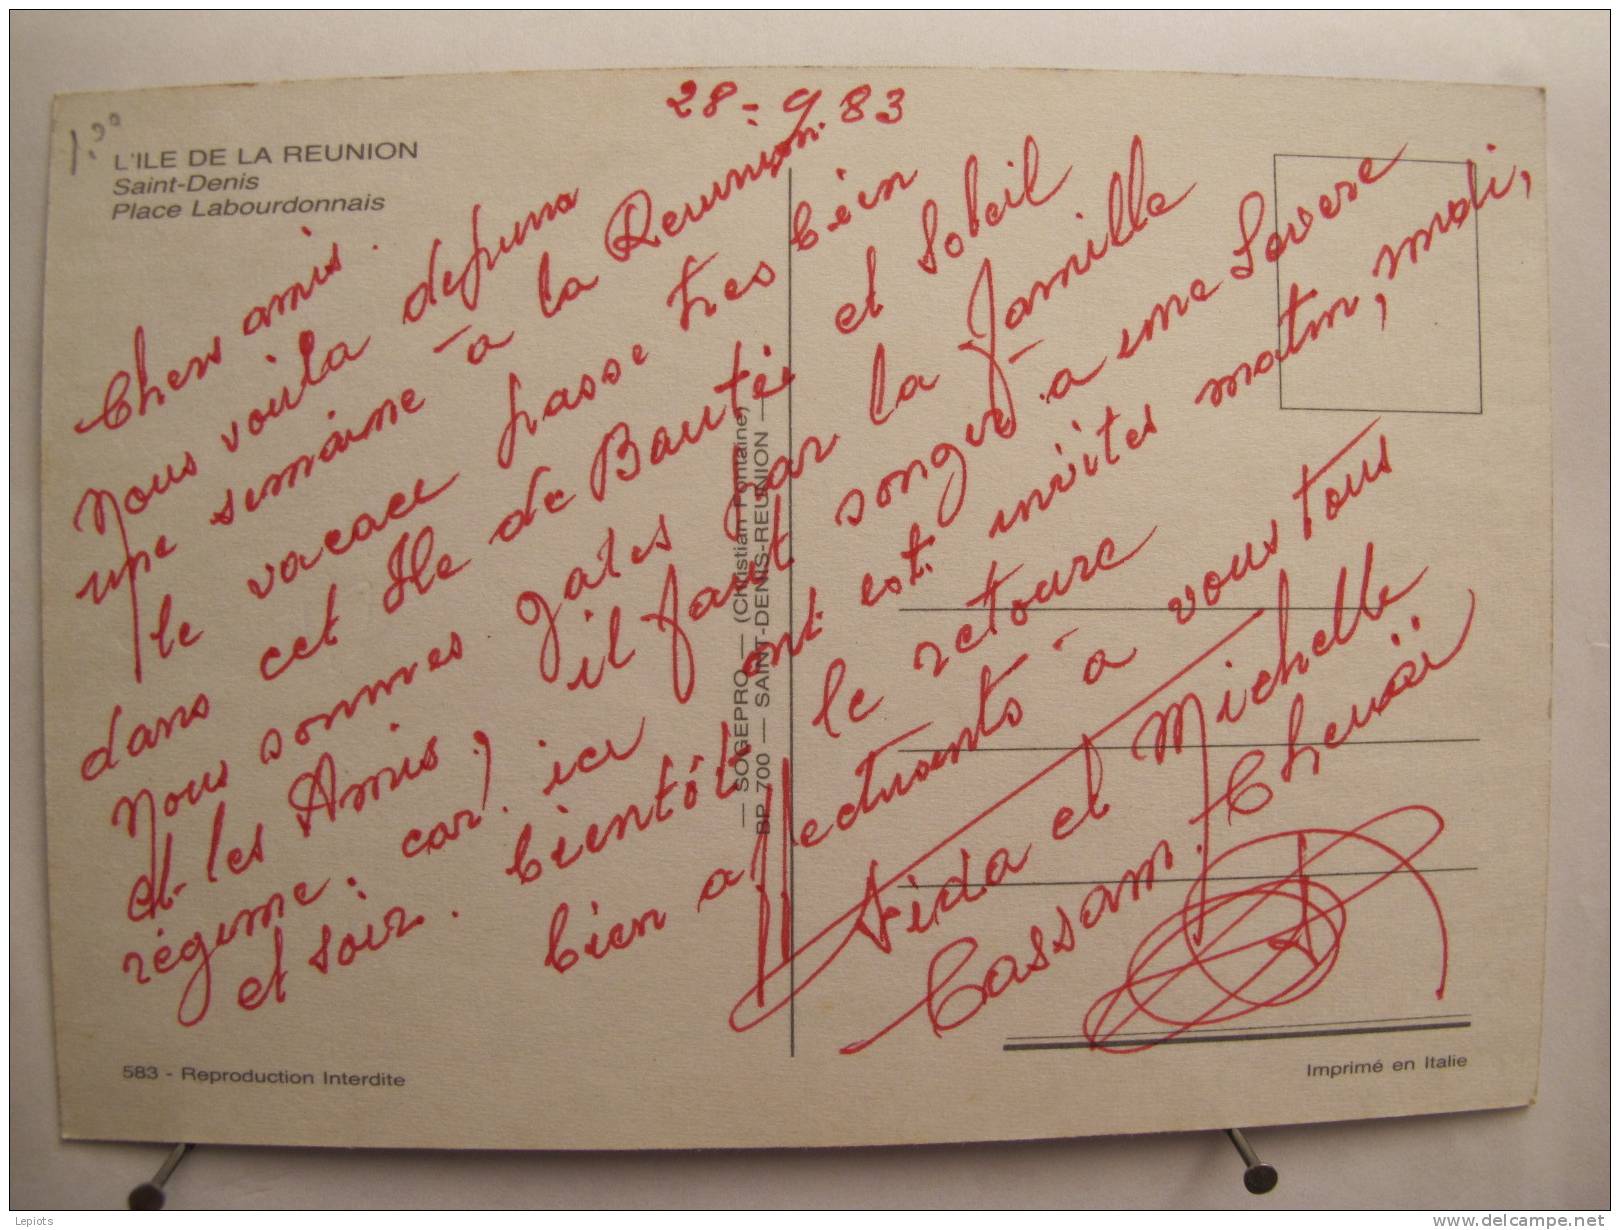 1.00
L'ILE DE LA REUNION
Saint-Denis
Place Labourdonnais
28-9.83
Chers amis.
Nous voila depuis
une semaine à la Reunion.
le vacace passe tres bien
dans cet Ile de Bauté et Soleil
Nous sommes gates par la famille
et les Amis, il faut songer a une Severe
régime. car ici ont est invites matin, midi,
et soir. bientôt le retoure
bien affectuents à vous tous
Aida et Michelle
Cassam. Chenaï
— SOGEPRO — (Christian Fontaine)
BP 700 — SAINT-DENIS-REUNION —
583 - Reproduction Interdite
Imprimé en Italie
Lepiots
www.delcampe.net